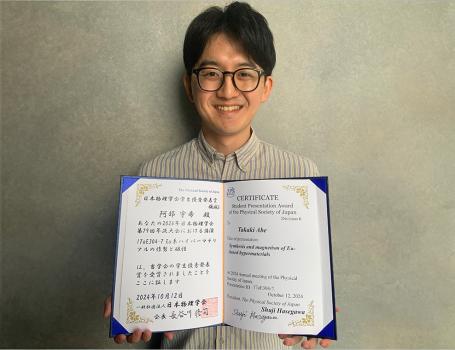 The Physical Society of Japan
日本物理学会学生優秀発表賞
領域6
阿部 宇希 殿
あなたの2024年日本物理学会
第79回年次大会における講演
17aE304-7 Eu系ハイパーマテリ
アルの作製と磁性
は、当学会の学生優秀発表
賞を受賞されましたことを
ここに証します
2024年10月12日
一般社団法人日本物理学会
会長 長谷川修司
CERTIFICATE
Student Presentation Award
of the Physical Society of Japan
Division 6
To
Takaki Abe
Synthesis and magnetism of Eu-
based hypermaterials
at 2024 annual meeting of the Physical
Society of Japan.
Presentation ID : 17aE304-7
October 12, 2024
President, The Physical Society of Japan
Shuji Hasegawa
Shuji Hasegawa